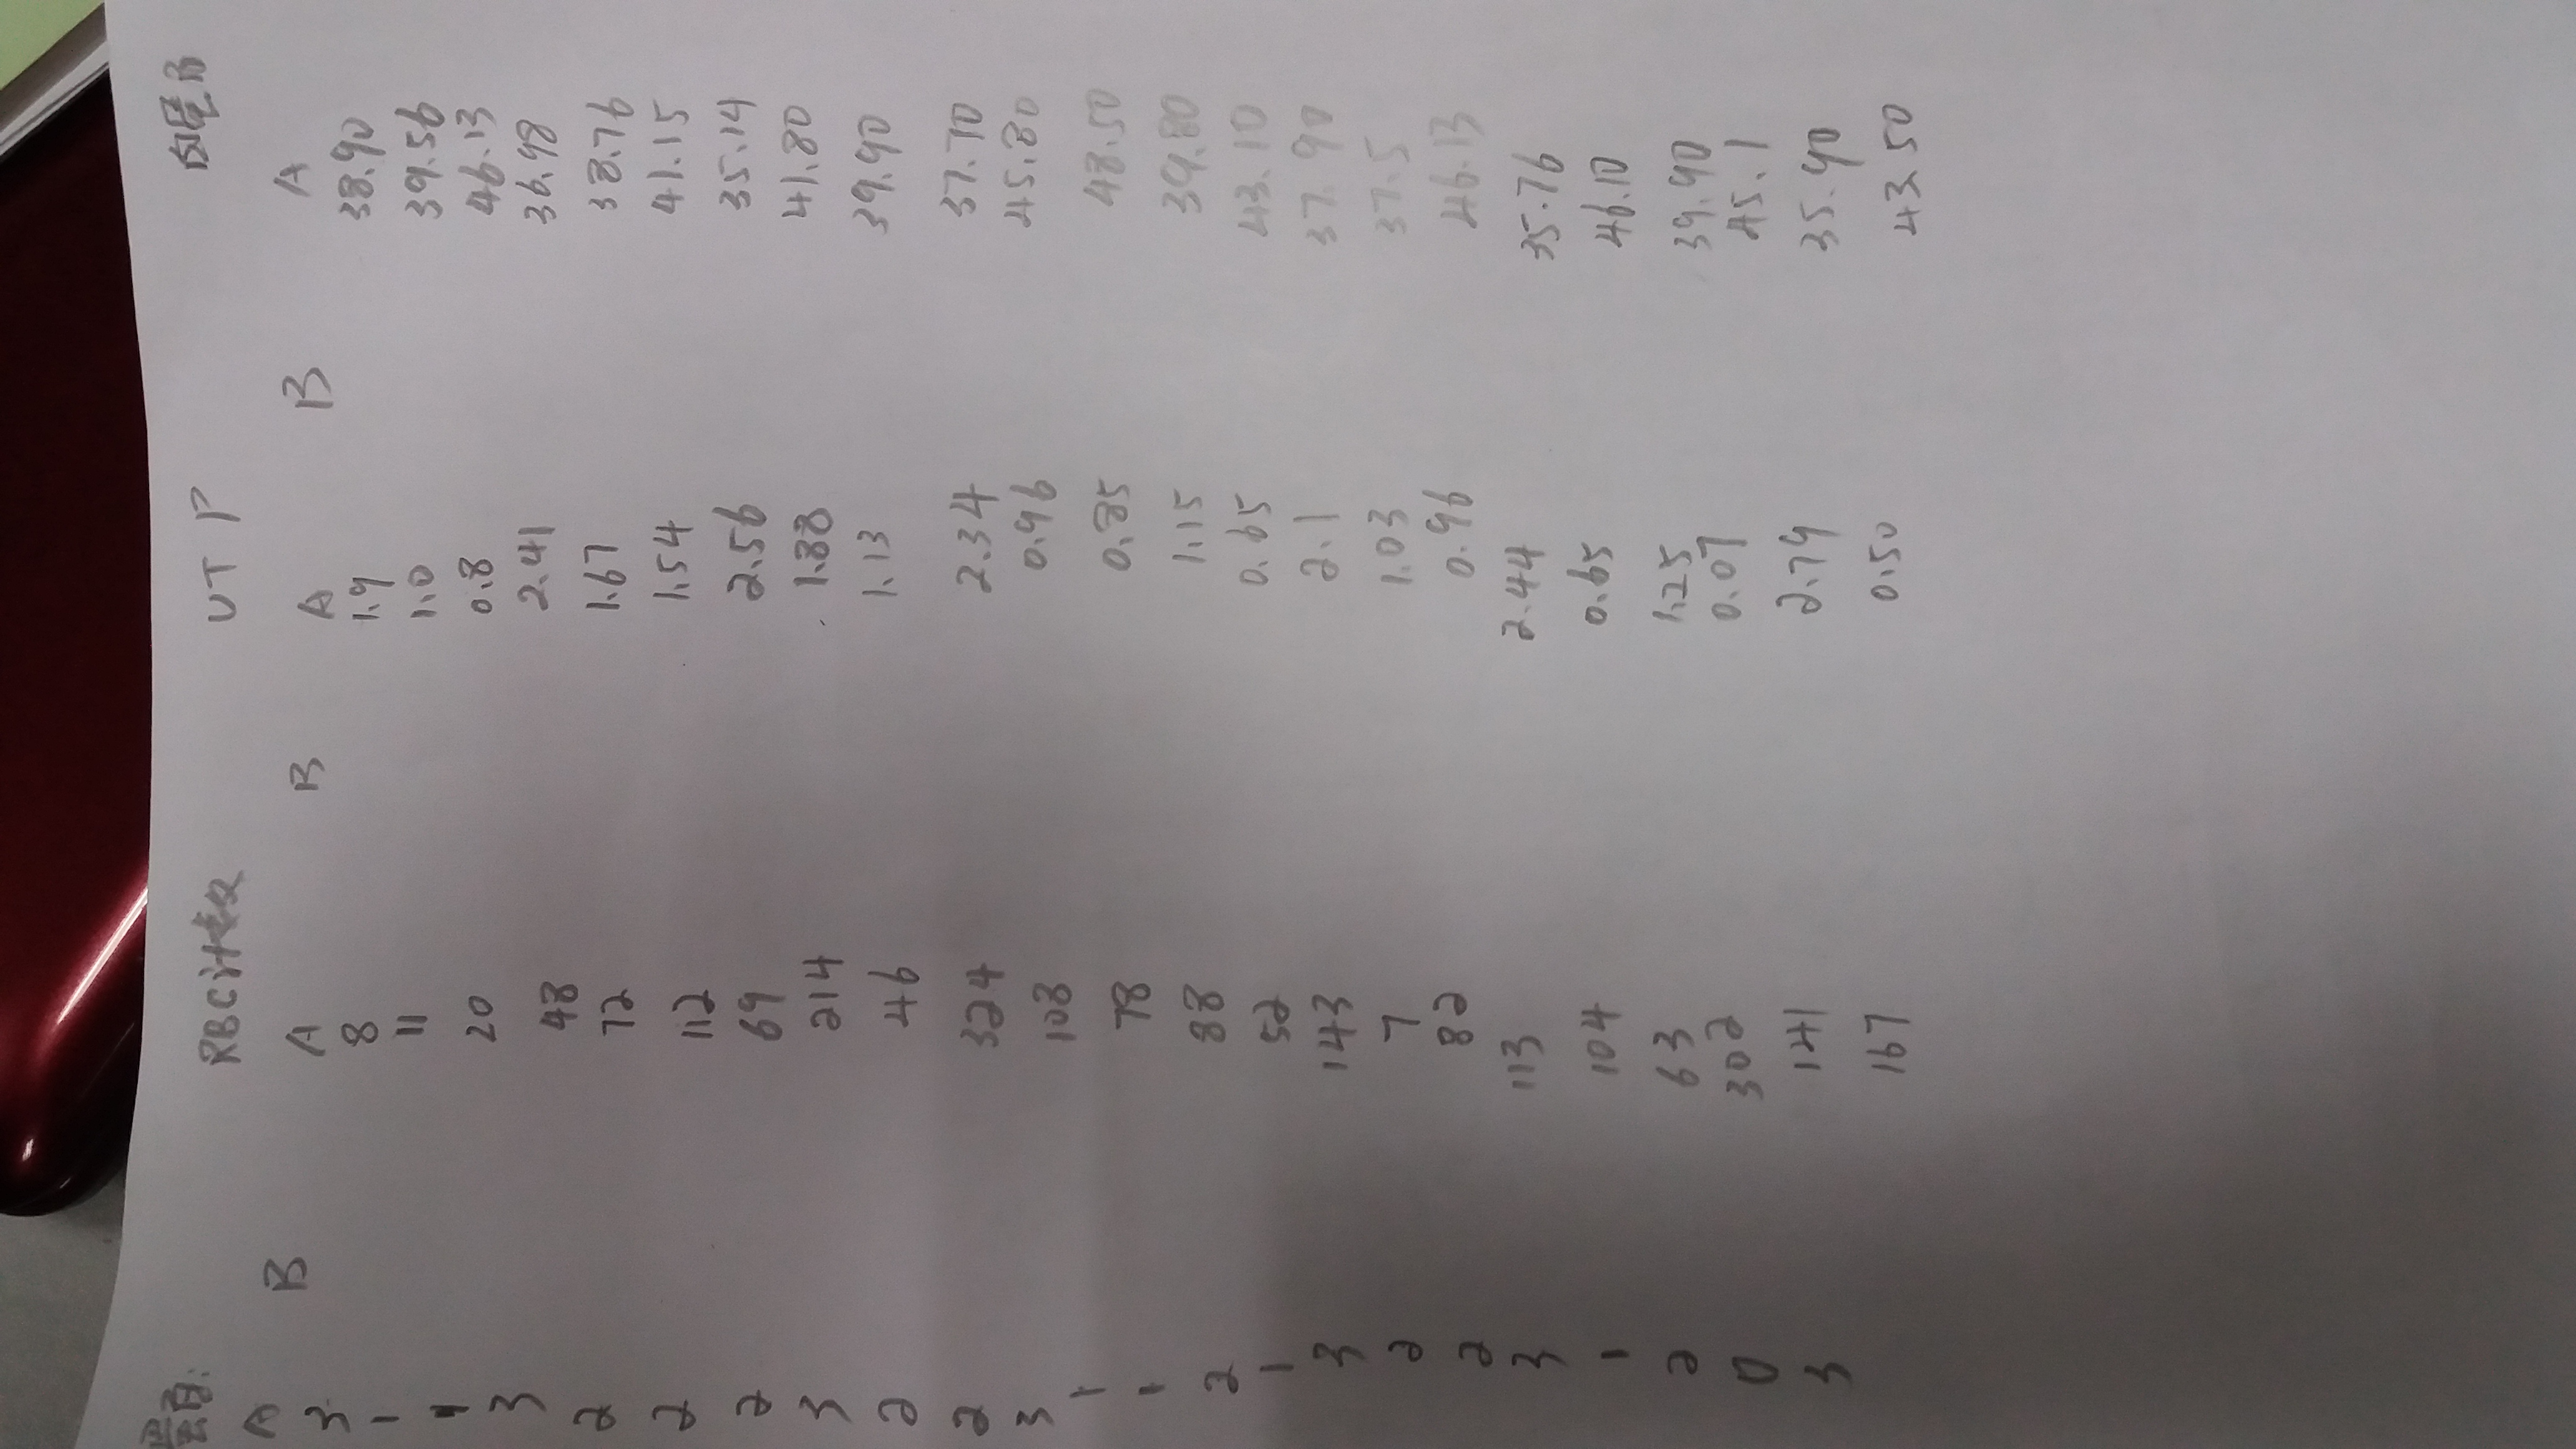 RBC计数 UTP 白蛋白
A B A B A B A
3 8 1.9 38.90
1 11 1.0 39.56
1 20 0.8 46.13
3 48 2.41 36.98
2 72 1.67 38.76
2 112 1.54 41.15
2 69 2.56 35.14
3 214 1.88 41.80
2 46 1.13 39.90
2
3 324 2.34 37.70
1 108 0.96 45.80
1 78 0.85 48.50
2 88 1.15 39.80
1 52 0.65 43.10
3 143 2.1 37.90
2 7 1.03 37.5
2 82 0.96 46.13
3 113 2.44 35.76
1 104 0.65 46.10
2 63 1.25 39.90
0 302 0.07 45.1
3 141 2.79 35.90
167 0.50 43.50